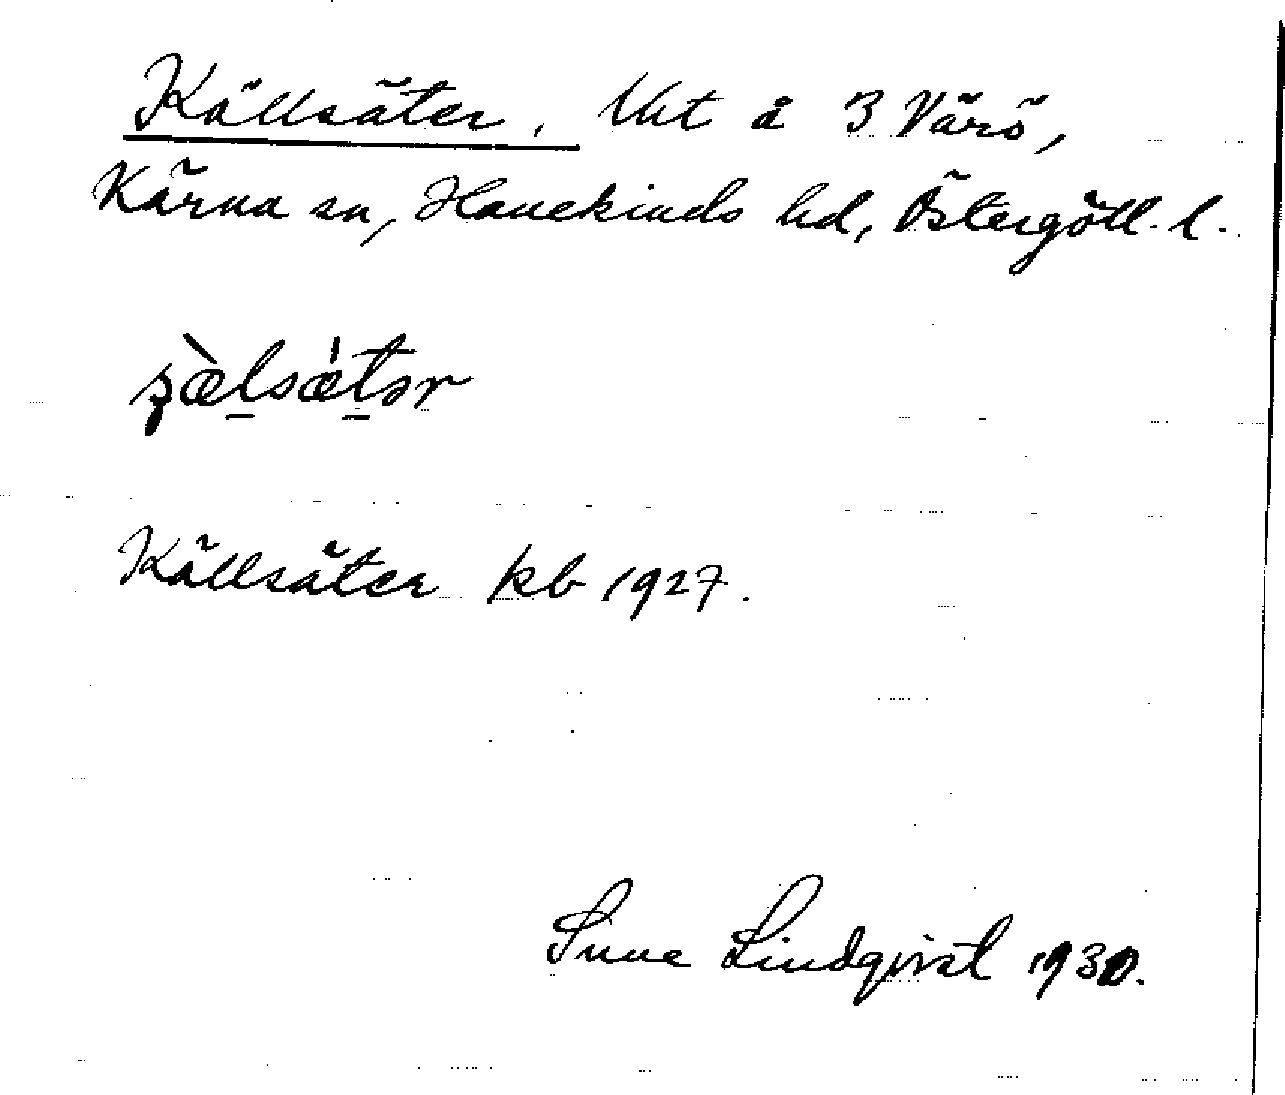 Källsäter, Vht å 3 Värö,
Kärna sn, Hanekinds hd, Östergötl. l.
s̨æ̀lsæ̍tər
Källsäter kb 1927.
Sune Lindqvist 1930.